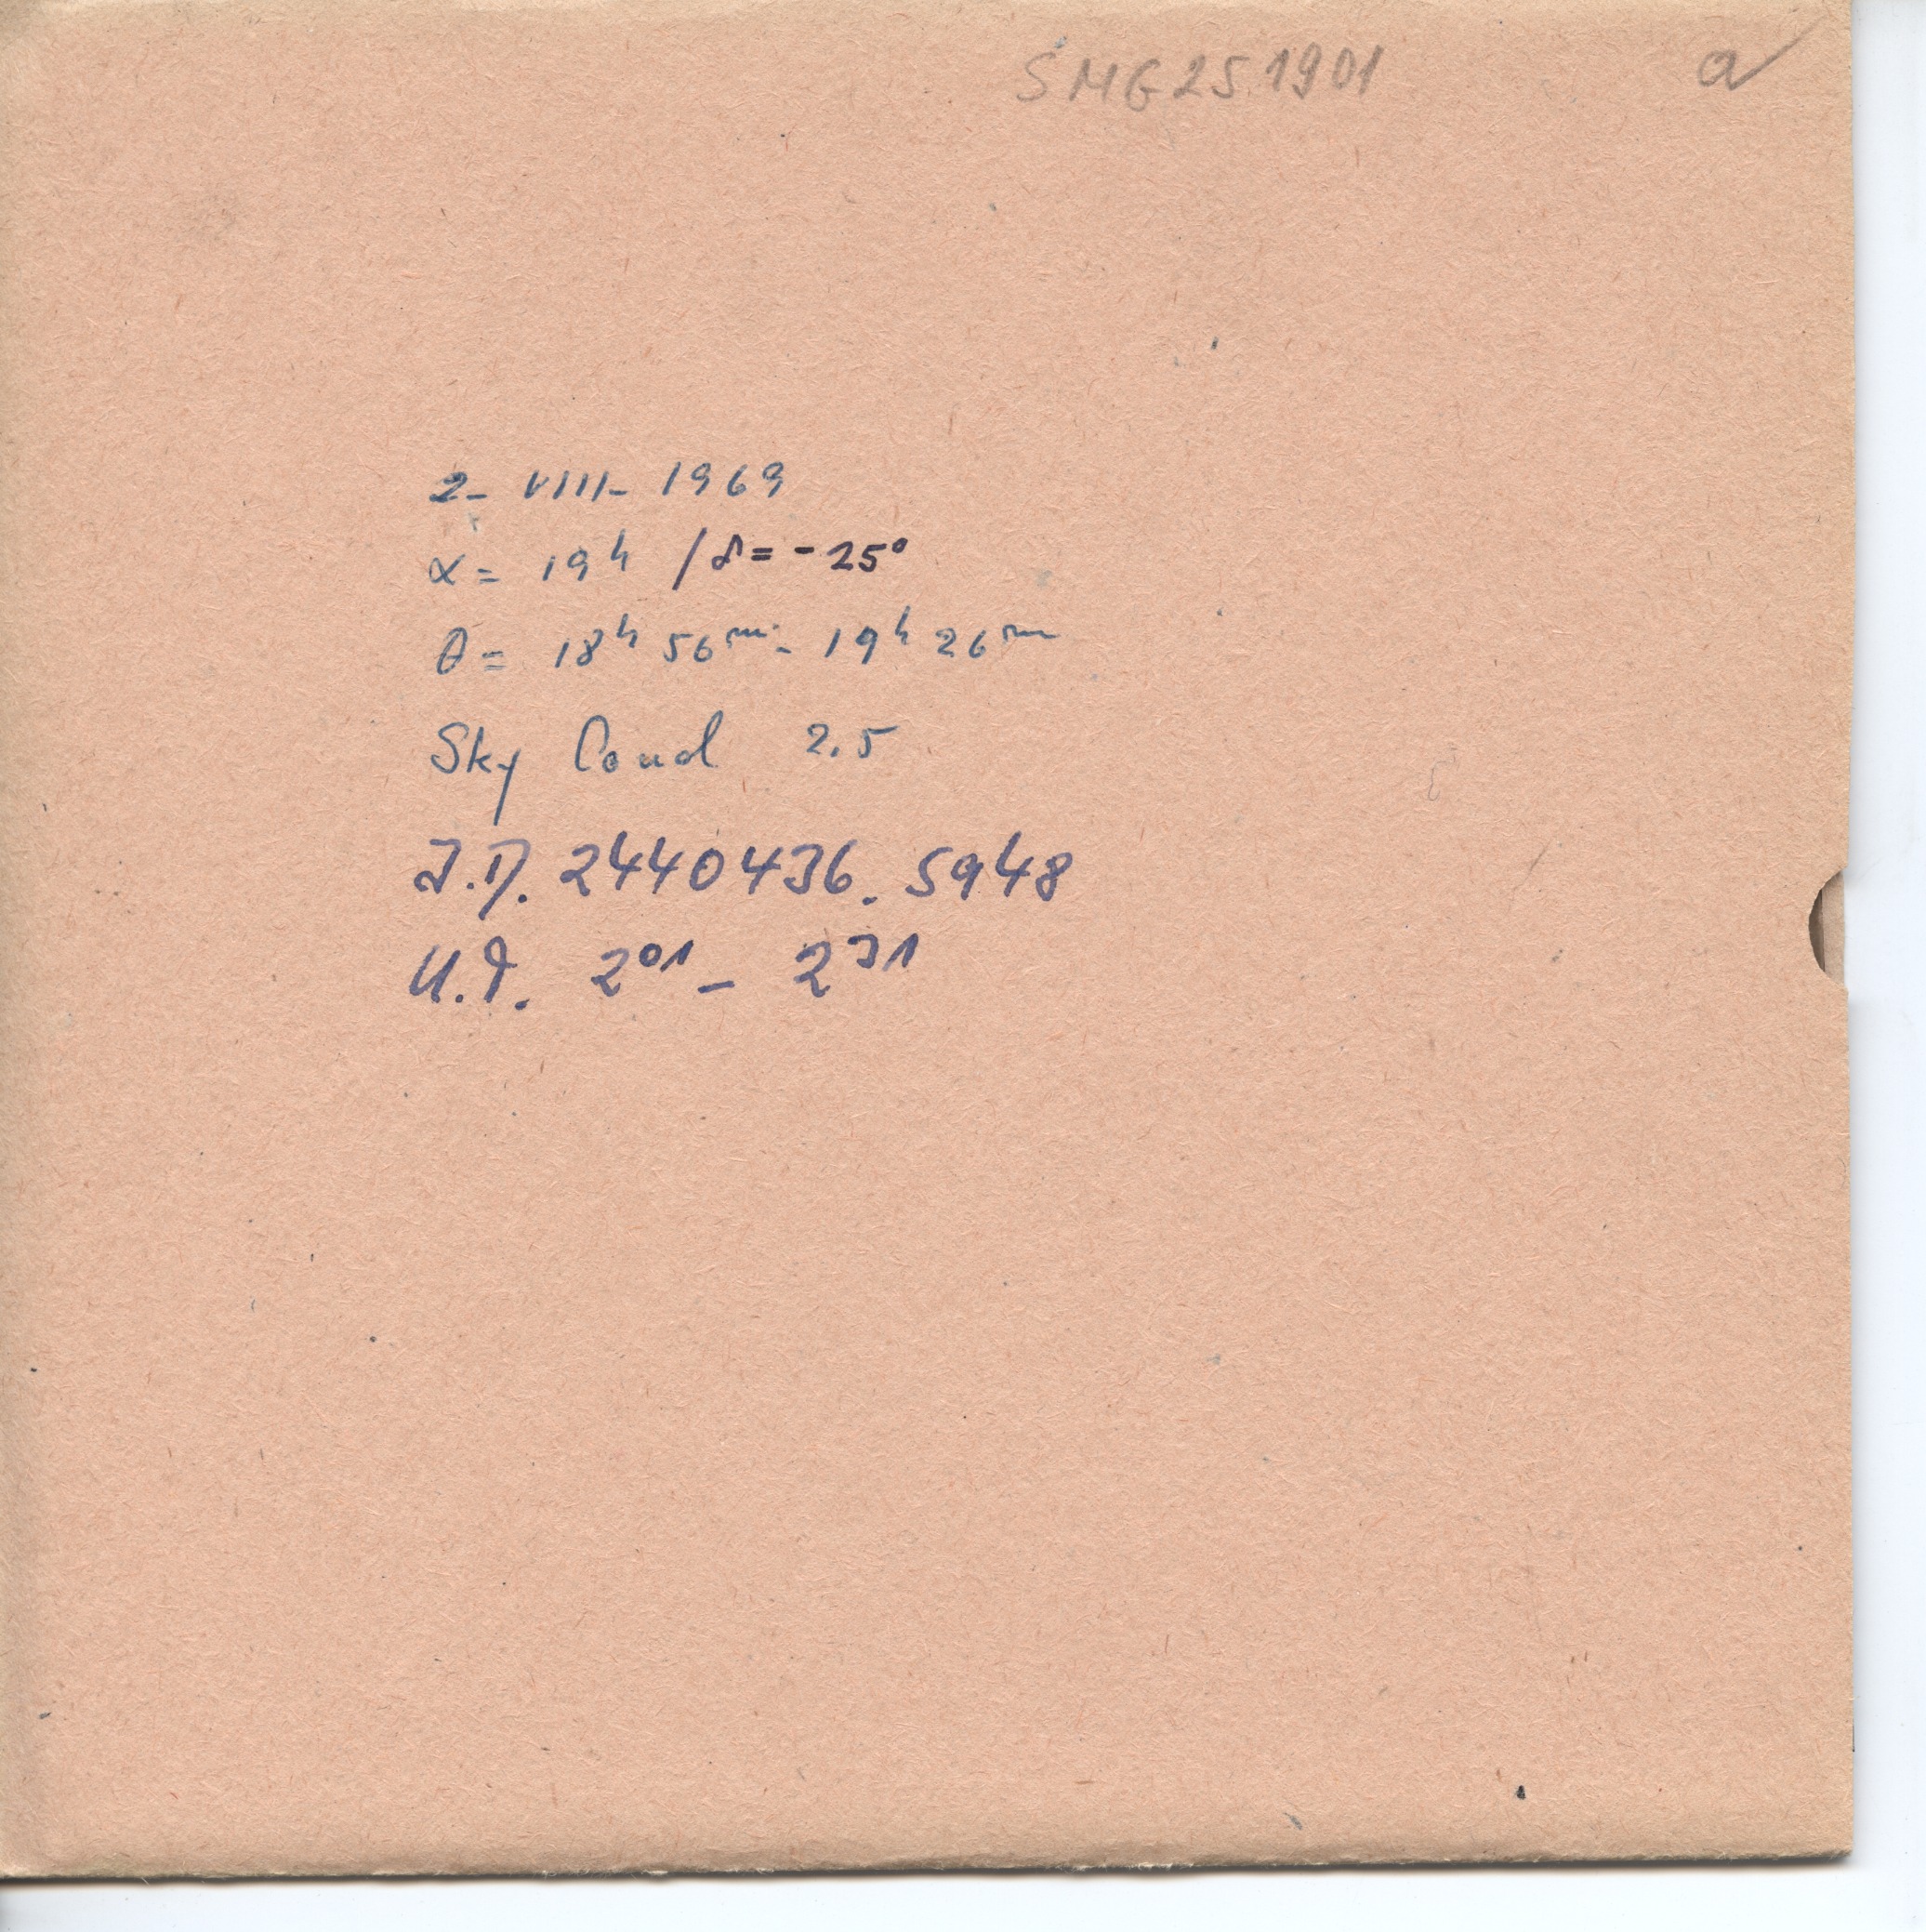 SMG25.1901 a
2- VIII- 1969
α= 19ʰ /δ= -25°
θ= 18ʰ 56ᵐ - 19ʰ 26ᵐ
Sky Cond 2.5
J.D. 2440436.5948
U.T. 2⁰¹ - 2³¹